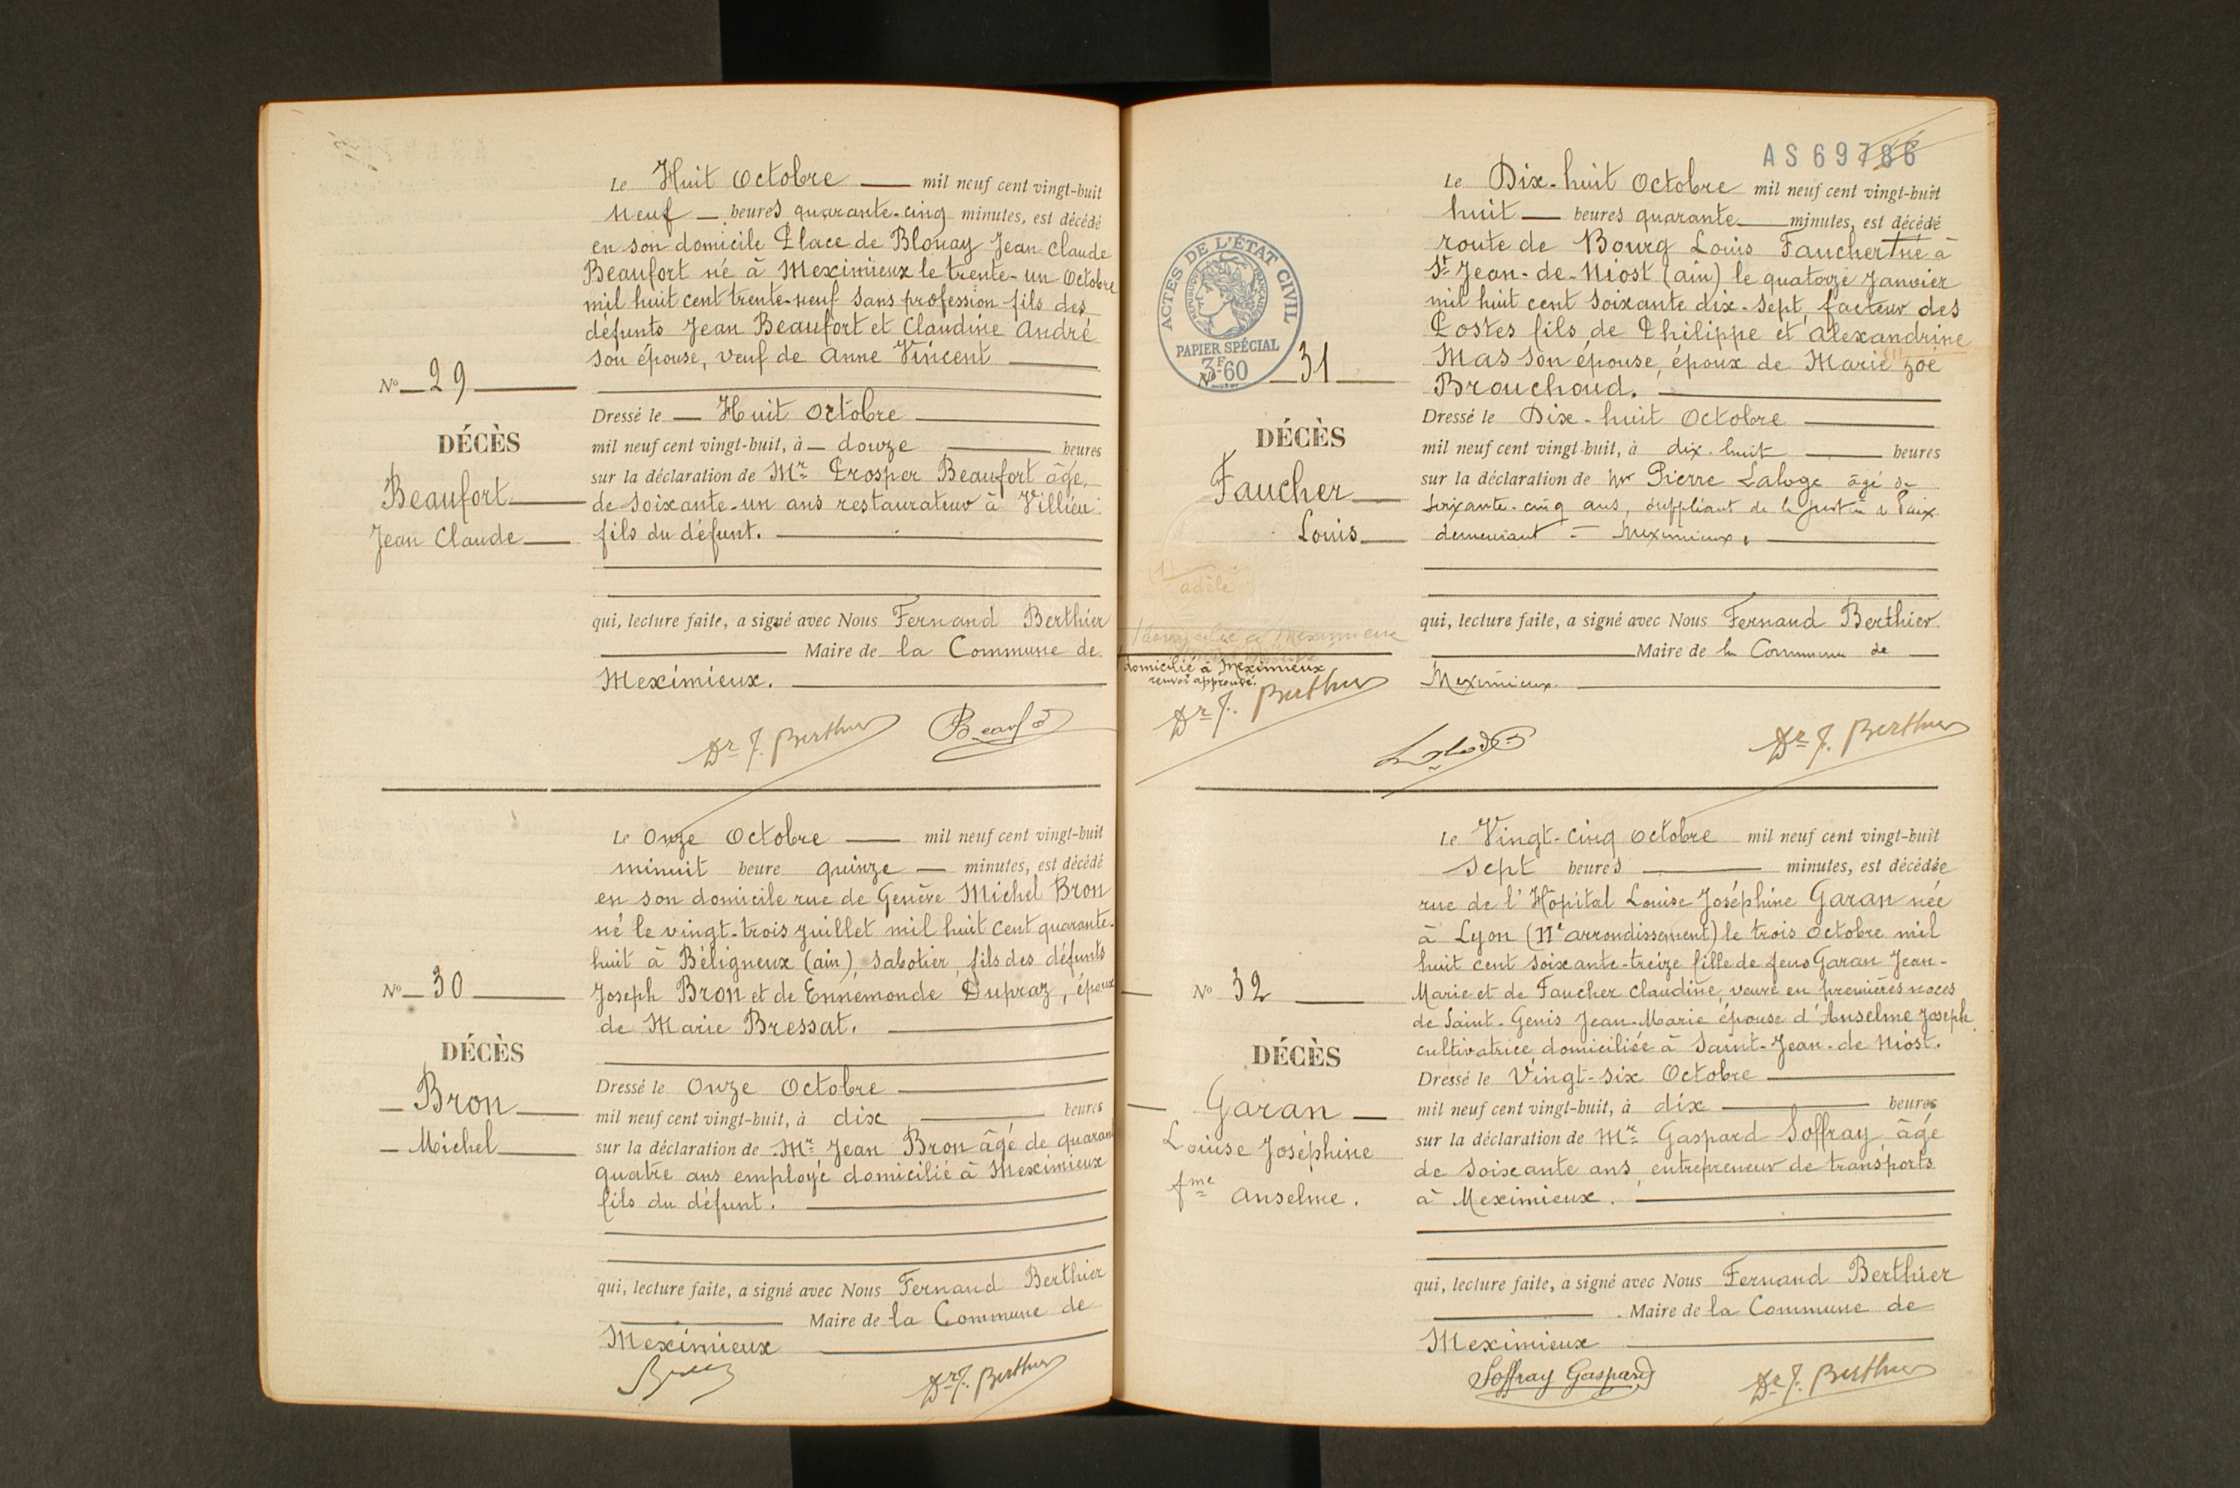 Le Huit Octobre mil neuf cent vingt-huit
neuf heures quarante-cinq minutes, est décédé
en son domicile Place de Blonay Jean Claude
Beaufort né à Meximieux le trente-un Octobre
mil huit cent trente-neuf sans profession fils des
défunts Jean Beaufort et Claudine André
son épouse, veuf de Anne Vincent
N° 29
DÉCÈS
Beaufort
Jean Claude
Dressé le Huit Octobre
mil neuf cent vingt-huit, à douze heures
sur la déclaration de Mr Prosper Beaufort âgé
de soixante-un ans restaurateur à Villieu
fils du défunt.
qui, lecture faite, a signé avec Nous Fernand Berthier
Maire de la Commune de
Meximieux.
Dr F. Berthier
Le Onze Octobre mil neuf cent vingt-huit
minuit heure quinze minutes, est décédé
en son domicile rue de Genève Michel Bron
né le vingt-trois juillet mil huit cent quarante-
huit à Béligneux (ain), sabotier, fils des défunts
Joseph Bron et de Ennemonde Dupraz, époux
de Marie Bressat.
N° 30
DÉCÈS
Bron
Michel
Dressé le Onze Octobre
mil neuf cent vingt-huit, à dix heures
sur la déclaration de Mr Jean Bron âgé de quarante
quatre ans employé domicilié à Meximieux
fils du défunt.
qui, lecture faite, a signé avec Nous Fernand Berthier
Maire de la Commune de
Meximieux
Dr F. Berthier
AS 69786
Le Dix-huit Octobre mil neuf cent vingt-huit
huit heures quarante minutes, est décédé
route de Bourg Louis Faucher né à
St Jean-de-Niost (ain) le quatorze Janvier
mil huit cent soixante dix-sept, facteur des
Postes fils de Philippe et Alexandrine
Mas son épouse, époux de Marie (1) zoé
Brouchoud.
ACTES DE L'ÉTAT CIVIL
RÉPUBLIQUE FRANÇAISE
PAPIER SPÉCIAL
3F60
N° 31
DÉCÈS
Faucher
Louis
Dressé le Dix-huit Octobre
mil neuf cent vingt-huit, à dix-huit heures
sur la déclaration de Mr Pierre Laloge âgé de
soixante-cinq ans, suppléant de la Justice de Paix
demeurant à Meximieux.
(1) adèle
domicilié à Meximieux
renvoi approuvé.
Dr F. Berthier
qui, lecture faite, a signé avec Nous Fernand Berthier
Maire de la Commune de
Meximieux
Dr F. Berthier
Le Vingt-cinq Octobre mil neuf cent vingt-huit
sept heures minutes, est décédée
rue de l'Hôpital Louise Joséphine Garan née
à Lyon (IIe arrondissement) le trois octobre mil
huit cent soixante-treize fille de feus Garan Jean-
Marie et de Faucher Claudine, veuve en premières noces
de Saint-Genis Jean-Marie épouse d'Anselme Joseph
cultivatrice domiciliée à Saint-Jean-de Niost.
N° 32
DÉCÈS
Garan
Louise Joséphine
fme Anselme.
Dressé le Vingt-six Octobre
mil neuf cent vingt-huit, à dix heures
sur la déclaration de Mr Gaspard Soffray âgé
de soixante ans, entrepreneur de transports
à Meximieux.
qui, lecture faite, a signé avec Nous Fernand Berthier
Maire de la Commune de
Meximieux
Soffray Gaspard
Dr F. Berthier